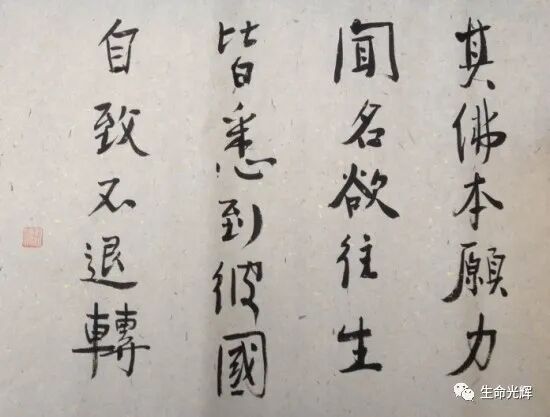 其佛本願力
聞名欲往生
皆悉到彼國
自致不退轉
生命光辉